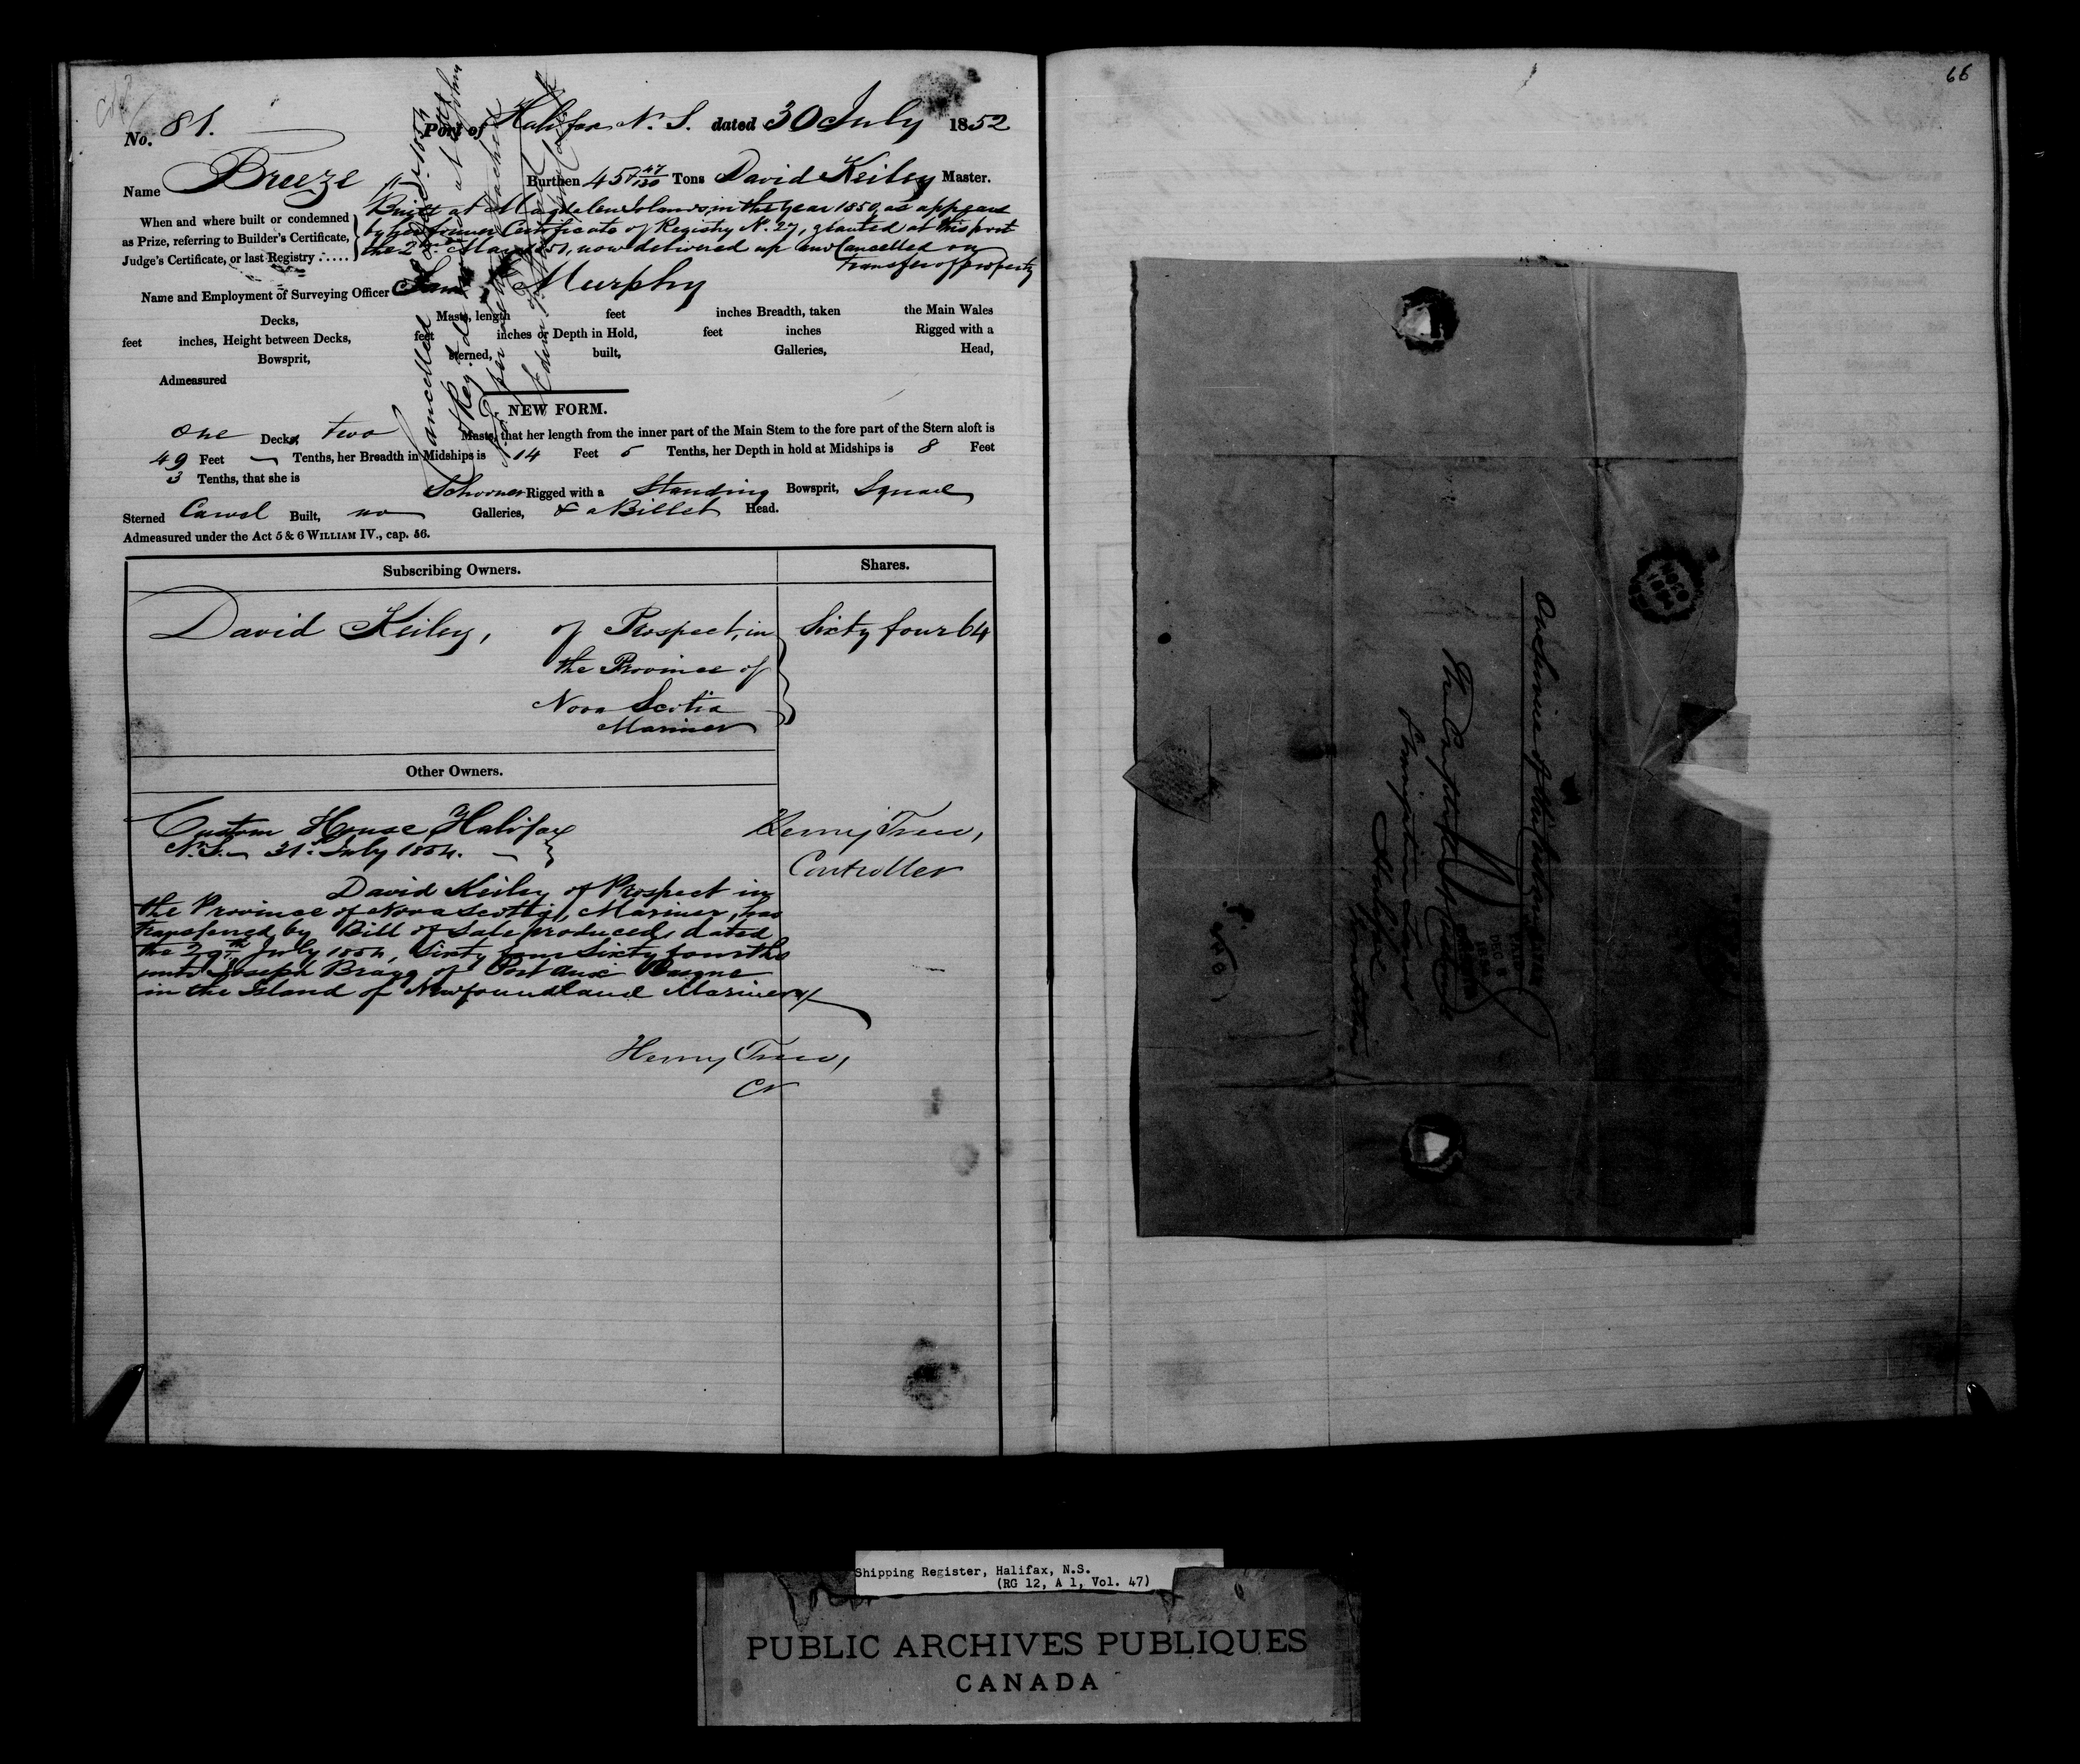 No. 81. Port of Halifax N. S. dated 30 July 1852
Name Breeze Burthen 45 47/130 Tons David Keiley Master.
When and where built or condemned
as Prize, referring to Builder's Certificate,
Judge's Certificate, or last Registry .....
Built at Magdalen Islands, in the Year 1850, as appears
by her former Certificate of Registry No. 27, granted at this port
the 2nd May 1851, now delivered up and Cancelled on
transfer of property
Name and Employment of Surveying Officer Murphy
Decks, Masts, length feet inches Breadth, taken the Main Wales
feet inches, Height between Decks, feet inches or Depth in Hold, feet inches Rigged with a
Bowsprit, sterned, built, Galleries, Head,
Admeasured
Cancelled
NEW FORM.
One Decks, two Masts, that her length from the inner part of the Main Stem to the fore part of the Stern aloft is
49 Feet — Tenths, her Breadth in Midships is 14 Feet 5 Tenths, her Depth in hold at Midships is 8 Feet
3 Tenths, that she is
Schooner Rigged with a Standing Bowsprit, Square
Sterned Carvel Built, no Galleries, & a Billet Head.
Admeasured under the Act 5 & 6 WILLIAM IV., cap. 56.
Subscribing Owners. Shares.
David Keiley, of Prospect, in Sixty four 64
the Province of
Nova Scotia
Mariner
Other Owners.
Custom House Halifax Henry Trew,
N.S. 31st July 1854. Controller
David Keiley of Prospect in
the Province of Nova Scotia, Mariner, has
transferred by Bill of Sale produced, dated
the 29th July 1854, Sixty four Sixty fourths
unto Joseph Bragg of Port aux Basque
in the Island of Newfoundland Mariner
Henry Trew,
Cr
66
On Service
Navigation Laws
Halifax
Shipping Register, Halifax, N.S.
(RG 12, A 1, Vol. 47)
PUBLIC ARCHIVES PUBLIQUES
CANADA